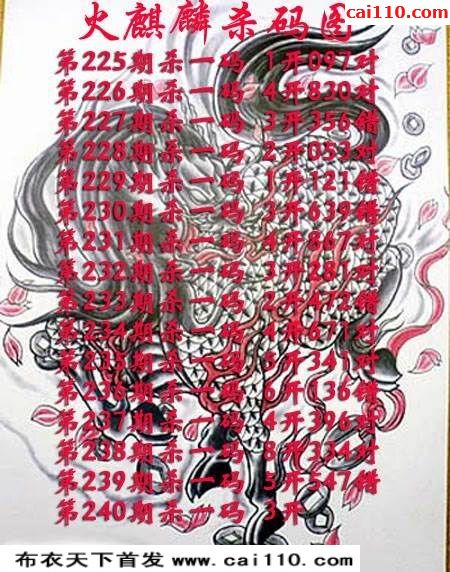 www.cai110.com
cai110.com
火麒麟杀码图
第225期杀一码 1开097对
第226期杀一码 4开830对
第227期杀一码 3开356错
第228期杀一码 2开053对
第229期杀一码 1开121错
第230期杀一码 3开639错
第231期杀一码 4开867对
第232期杀一码 3开281对
第233期杀一码 2开472错
第234期杀一码 4开671对
第235期杀一码 5开341对
第236期杀一码 6开136错
第237期杀一码 4开396对
第238期杀一码 8开334对
第239期杀一码 5开547错
第240期杀一码 3开
布衣天下首发 www.cai110.com